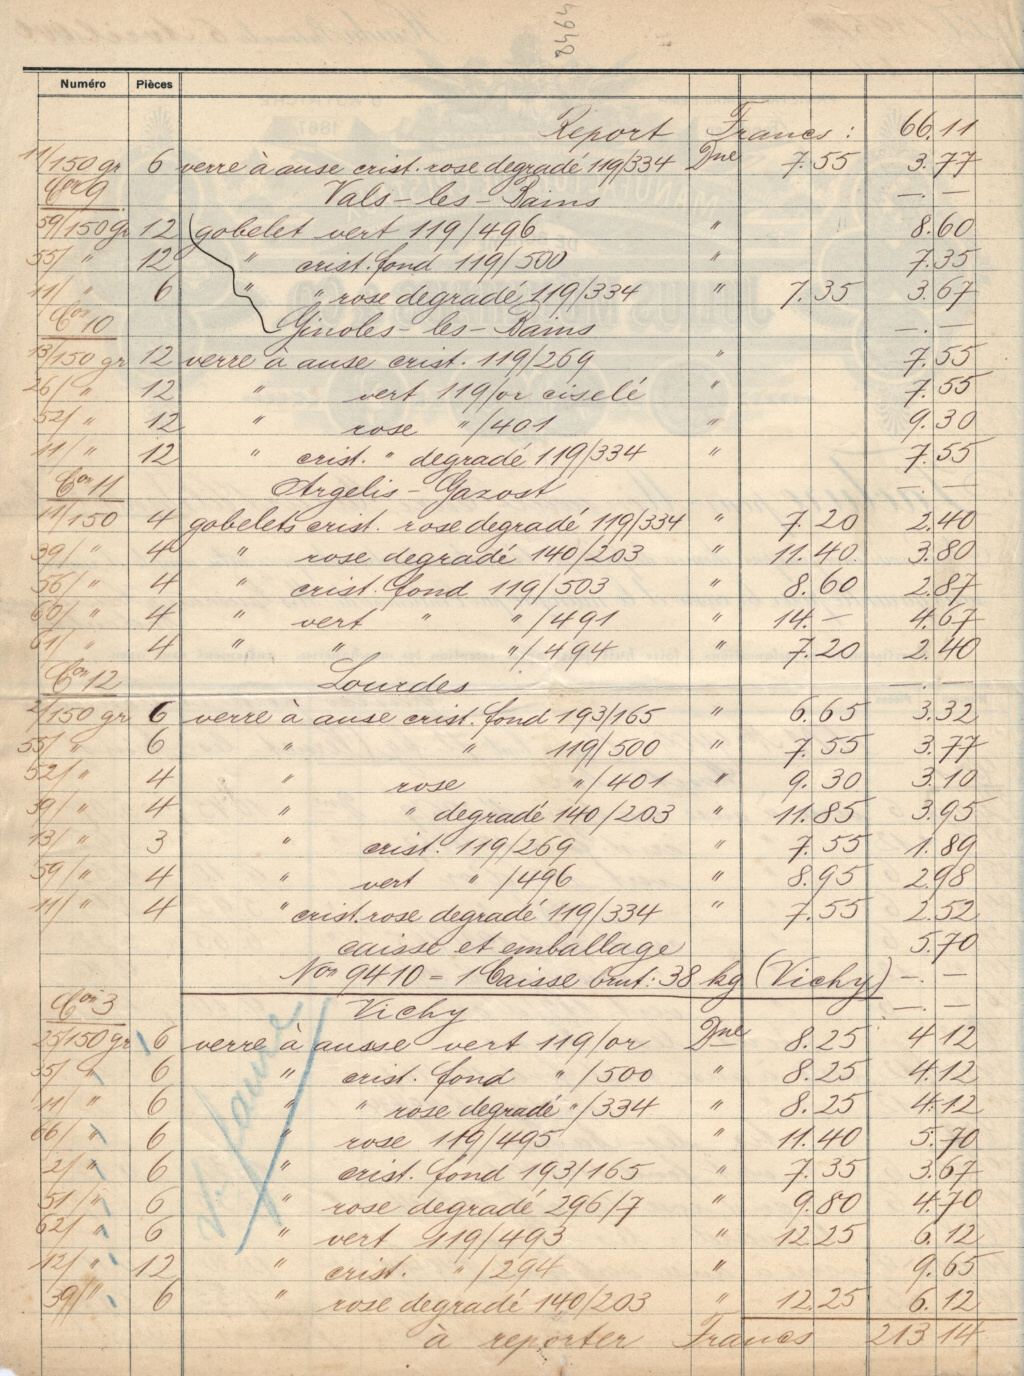 8464
Numéro Pièces
Report Francs : 66.11
11/150 gr 6 verre à anse crist. rose degradé 119/334 Dne 7.55 3.77
Con 9 Vals-les-Bains —.—
59/150 gr 12 gobelet vert 119/496 " 8.60
55/ " 12 " crist. fond 119/500 " 7.35
11/ " 6 " " rose degradé 119/334 " 7.35 3.67
Con 10 Ginoles-les-Bains —.—
13/150 gr 12 verre à anse crist. 119/269 " 7.55
26/ " 12 " vert 119/or ciselé " 7.55
52/ " 12 " rose "/401 " 9.30
11/ " 12 " crist. " degradé 119/334 " 7.55
Con 11 Argelis-Gazost —.—
11/150 4 gobelets crist. rose degradé 119/334 " 7.20 2.40
39/ " 4 " rose degradé 140/203 " 11.40 3.80
56/ " 4 " crist. fond 119/503 " 8.60 2.87
60/ " 4 " vert " "/491 " 14.— 4.67
61/ " 4 " " "/494 " 7.20 2.40
Con 12 Lourdes —.—
2/150 gr 6 verre à anse crist. fond 193/165 " 6.65 3.32
55/ " 6 " " 119/500 " 7.55 3.77
52/ " 4 " rose "/401 " 9.30 3.10
39/ " 4 " " degradé 140/203 " 11.85 3.95
13/ " 3 " crist. 119/269 " 7.55 1.89
59/ " 4 " vert " /496 " 8.95 2.98
11/ " 4 " crist. rose degradé 119/334 " 7.55 2.52
caisse et emballage 5.70
Non 9410 = 1 Caisse brut: 38 kg (Vichy) —.—
Con 3 Vichy —.—
25/150 gr 6 verre à ausse vert 119/or Dne 8.25 4.12
55/ " 6 " crist. fond " /500 " 8.25 4.12
11/ " 6 " " rose degradé "/334 " 8.25 4.12
66/ " 6 " rose 119/495 " 11.40 5.70
2/ " 6 " crist. fond 193/165 " 7.35 3.67
51/ " 6 " rose degradé 296/7 " 9.80 4.70
62/ " 6 " vert 119/493 " 12.25 6.12
12/ " 12 " crist. " /294 " 9.65
39/ " 6 " rose degradé 140/203 " 12.25 6.12
à reporter Francs 213 14